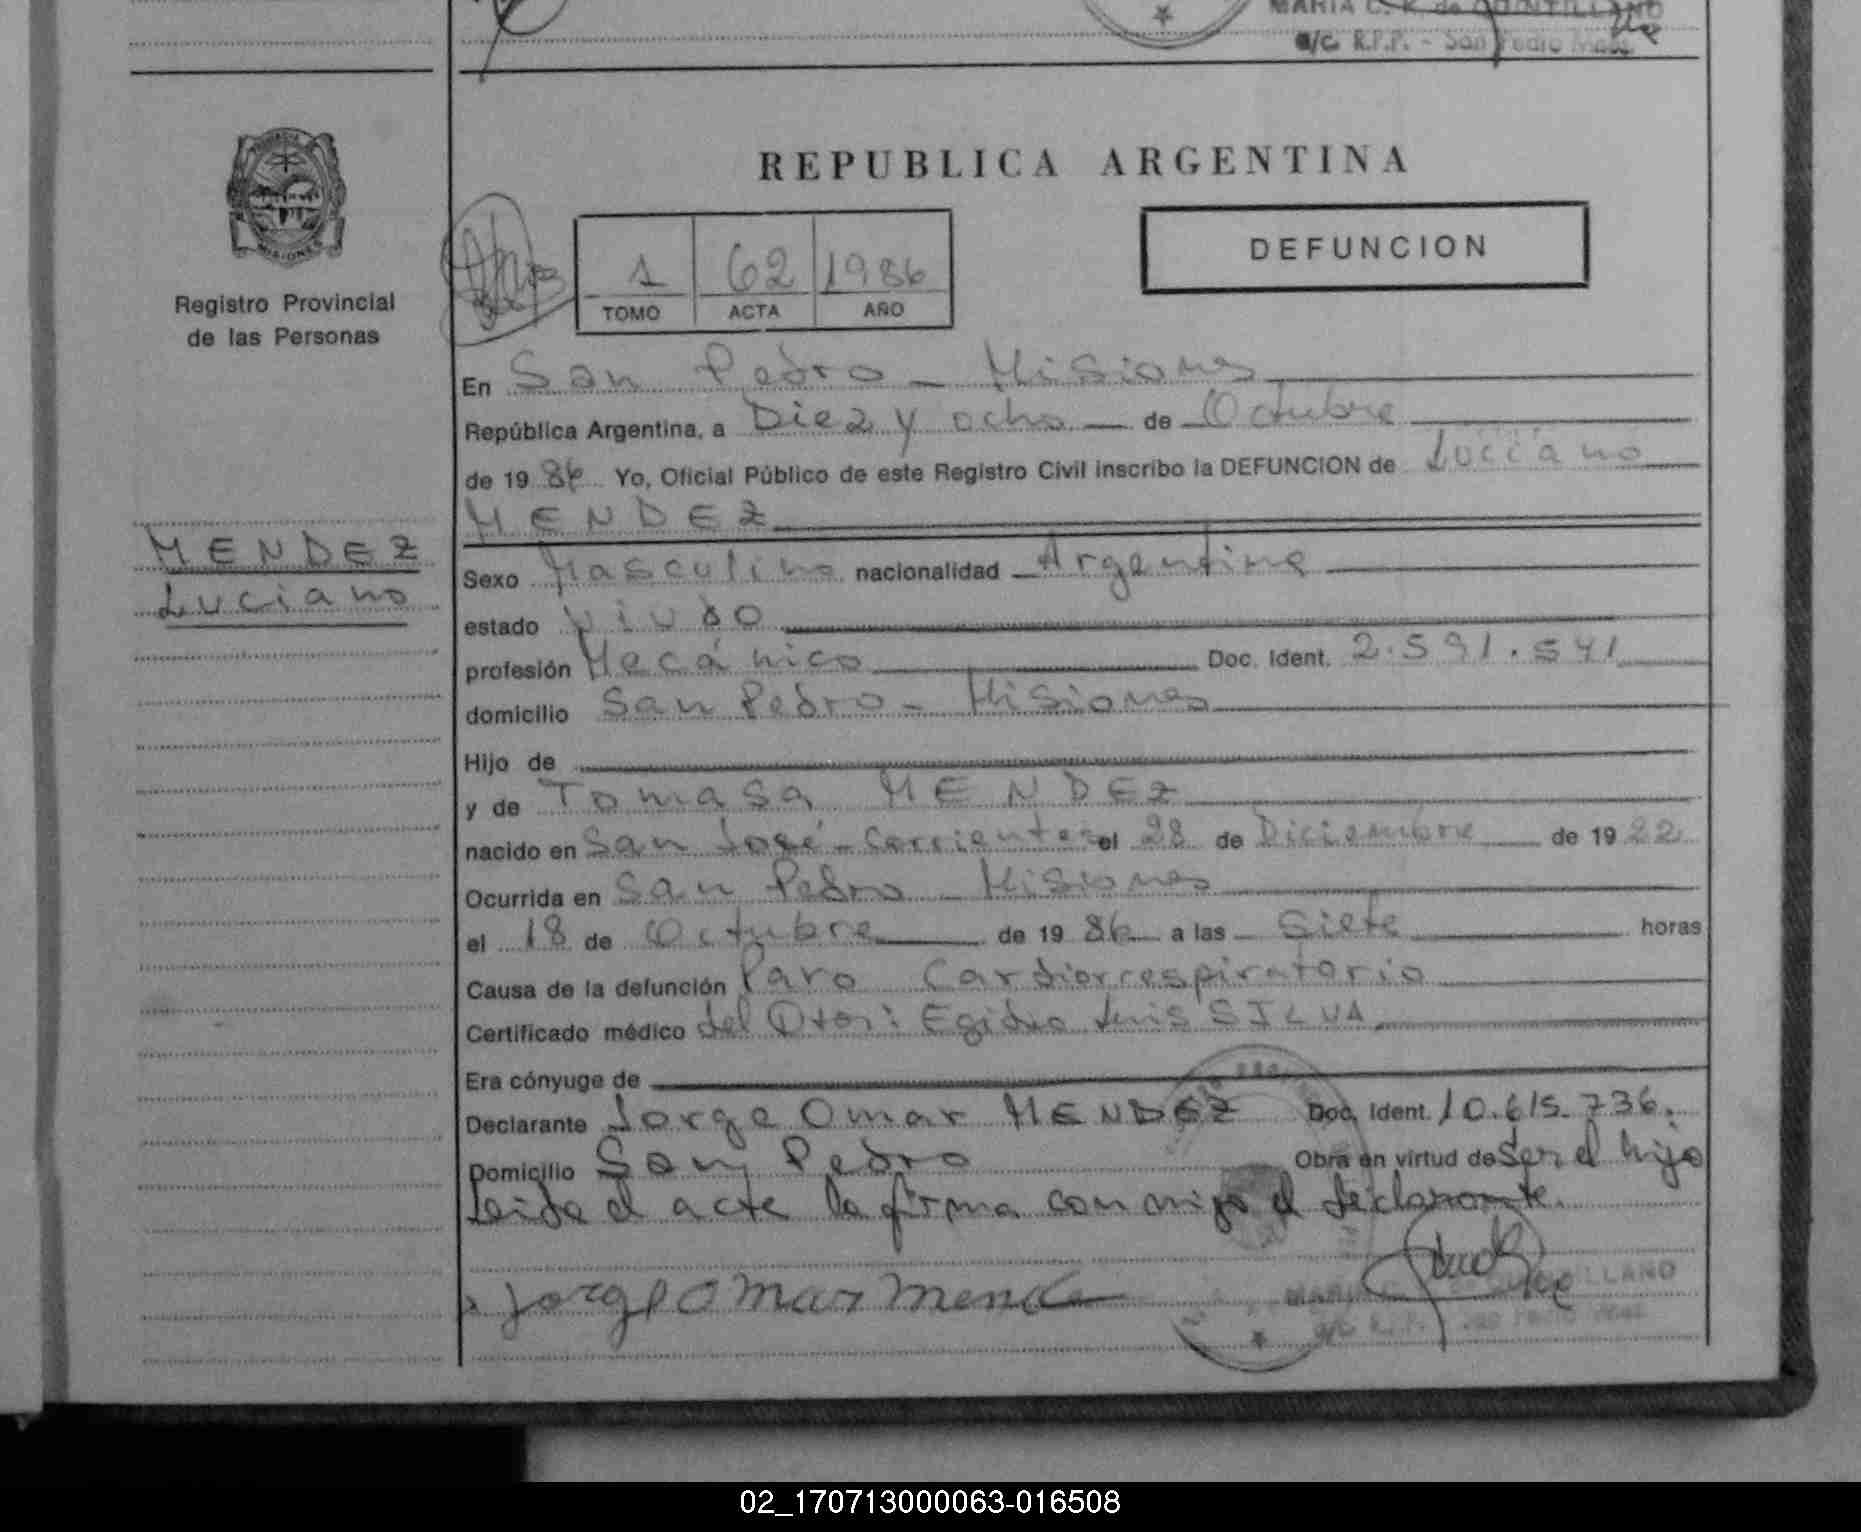 MARIA C. R. de QUINTILLANO
a/c. R.P.P. - San Pedro Mnes.
REPUBLICA ARGENTINA
DEFUNCION
1 62 1986
TOMO ACTA AÑO
Registro Provincial
de las Personas
MENDEZ
Luciano
En San Pedro - Misiones
República Argentina, a Diez y ocho de Octubre
de 19 86 Yo, Oficial Público de este Registro Civil inscribo la DEFUNCION de Luciano
MENDEZ
Sexo Masculino nacionalidad Argentina
estado viudo
profesión Mecánico Doc. Ident. 2.591.541
domicilio San Pedro - Misiones
Hijo de
y de Tomasa MENDEZ
nacido en San José - Corrientes el 28 de Diciembre de 19 22
Ocurrida en San Pedro - Misiones
el 18 de Octubre de 19 86 a las Siete horas
Causa de la defunción Paro Cardiorrespiratorio
Certificado médico del Dtor: Egidio Luis SILVA
Era cónyuge de
Declarante Jorge Omar MENDEZ Doc. Ident. 10.615.736.
Domicilio San Pedro Obra en virtud de Ser el hijo
Leida el acta la firma conmigo el declarante.
Jorge Omar Mende
MARIA C. QUINTILLANO
a/c R.P. San Pedro Mnes
02_170713000063-016508